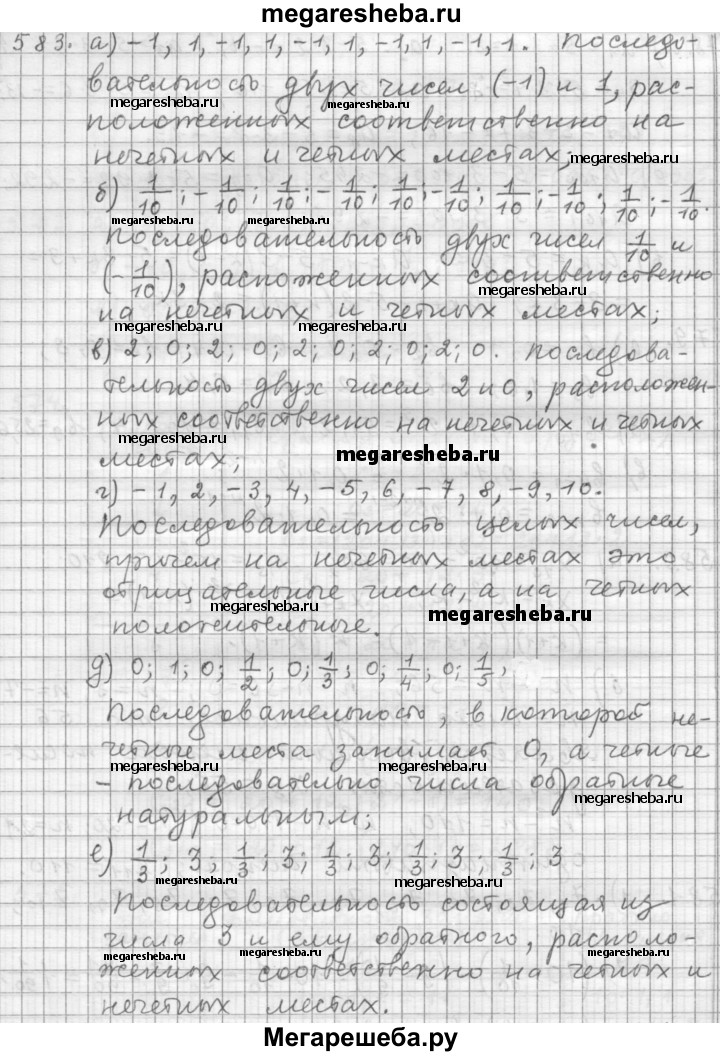 megaresheba.ru
583. а) -1, 1, -1, 1, -1, 1, -1, 1, -1, 1. Последо-
вательность двух чисел (-1) и 1, рас-
megaresheba.ru megaresheba.ru
положенных соответственно на
нечетных и четных местах; megaresheba.ru
б) 1/10; -1/10; 1/10; -1/10; 1/10; -1/10; 1/10; -1/10; 1/10; -1/10.
megaresheba.ru megaresheba.ru
Последовательность двух чисел 1/10 и
(-1/10), расположенных соответственно
megaresheba.ru
на нечетных и четных местах;
megaresheba.ru megaresheba.ru
в) 2; 0; 2; 0; 2; 0; 2; 0; 2; 0. Последова-
тельность двух чисел 2 и 0, расположен-
ных соответственно на нечетных и четных
megaresheba.ru
местах; megaresheba.ru
г) -1, 2, -3, 4, -5, 6, -7, 8, -9, 10.
Последовательность целых чисел,
причем на нечетных местах это
отрицательные числа, а на четных
megaresheba.ru megaresheba.ru
положительные.
д) 0; 1; 0; 1/2; 0; 1/3; 0; 1/4; 0; 1/5,
Последовательность, в которой не-
четные места занимает 0, а четные
megaresheba.ru megaresheba.ru
- последовательно числа обратные
megaresheba.ru
натуральным;
е) 1/3; 3, 1/3; 3; 1/3; 3; 1/3; 3; 1/3; 3
megaresheba.ru megaresheba.ru
Последовательность состоящая из
числа 3 и ему обратного, располо-
megaresheba.ru megaresheba.ru
женных соответственно на четных и
нечетных местах.
Мегарешеба.ру